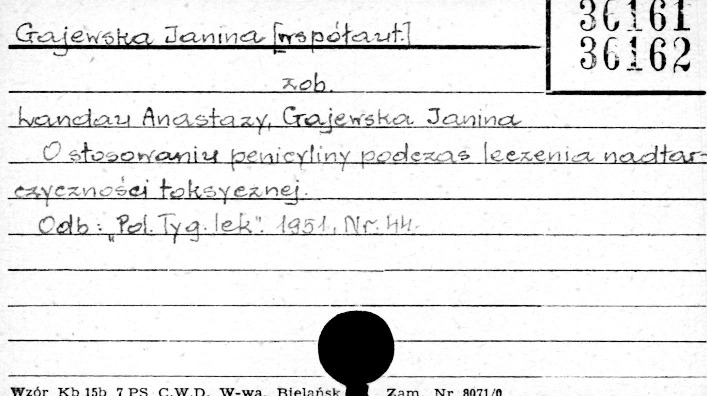 36161
36162
Gajewska Janina [współaut.]
zob.
Landau Anastazy, Gajewska Janina
O stosowaniu penicyliny podczas leczenia nadtar-
czyczności toksycznej.
Odb: „Pol. Tyg. lek". 1951, Nr. 44.
Wzór Kb 15b 7 PS C.W.D. W-wa, Bielańsk Zam. Nr 8071/0